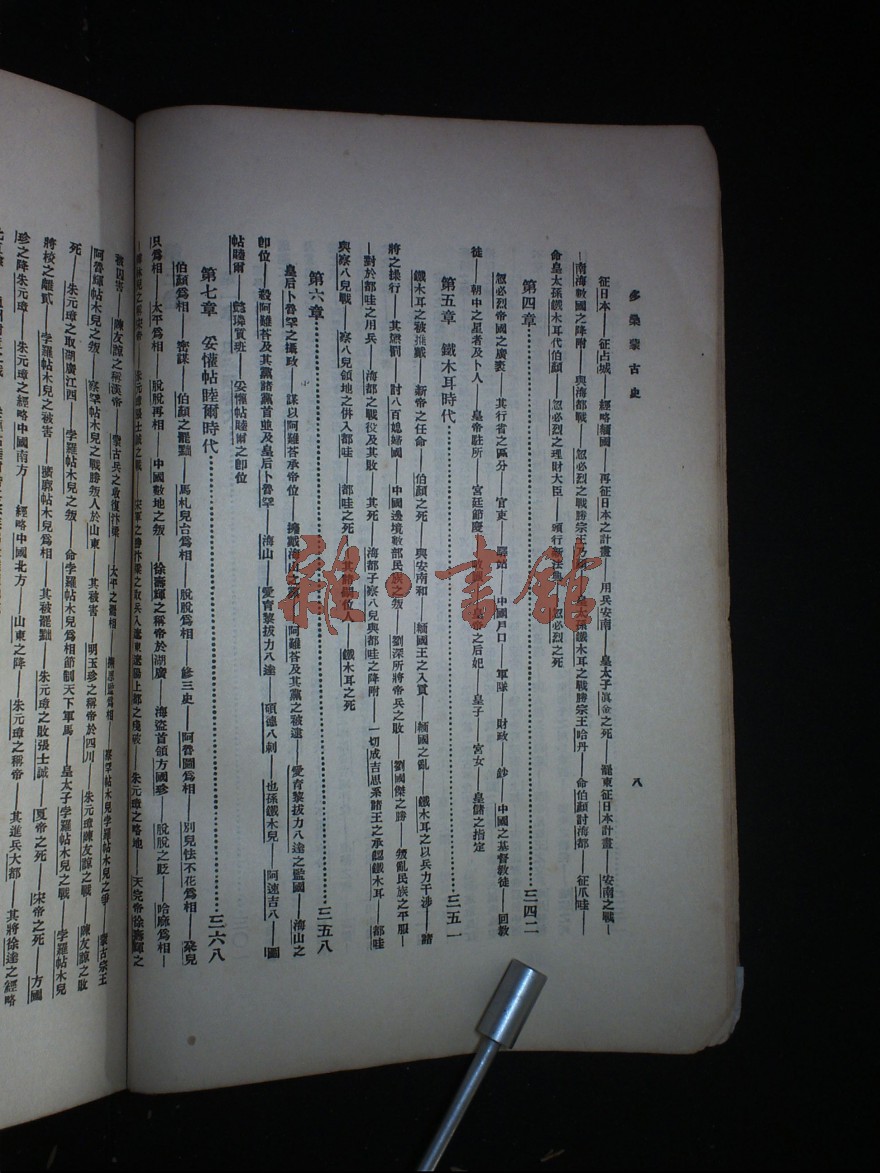 多桑蒙古史
八
征日本——征占城——經略緬國——再征日本之計畫——用兵安南——皇太子眞金之死——罷東征日本計畫——安南之戰——
南海數國之降附——與海都戰——忽必烈之戰勝宗王乃顏——皇太孫鐵木耳之戰勝宗王哈丹——命伯顏討海都——征爪哇——
命皇太孫鐵木耳代伯顏——忽必烈之理財大臣——頒行新法典——忽必烈之死
第四章……三四二
忽必烈帝國之廣袤——其行省之區分——官吏——驛站——中國戶口——軍隊——財政——鈔——中國之基督教徒——回教
徒——朝中之星者及卜人——皇帝駐所——宮廷節慶——畋獵——皇帝之后妃——皇子——宮女——皇儲之指定
第五章 鐵木耳時代……三五一
鐵木耳之被推戴——新帝之任命——伯顏之死——與安南和——緬國王之入貢——緬國之亂——鐵木耳之以兵力干涉——諸
將之操行——其懲罰——討八百媳婦國——中國邊境數部民族之叛——劉深所將帝兵之敗——劉國傑之勝——叛亂民族之平服——
對於都哇之用兵——海都之戰役及其敗——其死——海都子察八兒與都哇之降附——一切成吉思系諸王之承認鐵木耳——都哇
與察八兒戰——察八兒領地之併入都哇——都哇之死——其諸嗣位人——鐵木耳之死
第六章……三五八
皇后卜魯罕之攝政——謀以阿難荅承帝位——擁戴海山之黨——阿難荅及其黨之被逮——愛育黎拔力八達之監國——海山之
卽位——殺阿難荅及其黨諸黨首並及皇后卜魯罕——海山——愛育黎拔力八達——碩德八剌——也孫鐵木兒——阿速吉八——圖
帖睦爾——懿璘質班——妥懽帖睦爾之卽位
第七章 妥懽帖睦爾時代……三六八
伯顏爲相——密謀——伯顏之罷黜——馬札兒台爲相——脫脫爲相——修三史——阿魯圖爲相——別兒怯不花爲相——朶兒
只爲相——太平爲相——脫脫再相——中國數地之叛——徐壽輝之稱帝於湖廣——海盜首領方國珍——脫脫之貶——哈麻爲相——
之稱宋帝——朱元璋張士誠之戰——宋軍之據汴梁——之敗兵入遼東遼陽上都之殘破——朱元璋之略地——天完帝徐壽輝之
被害——陳友諒之稱漢帝——蒙古兵之收復汴梁——太平之罷相——搠思監爲相——察罕帖木兒孛羅帖木兒之爭——蒙古宗王
阿魯輝帖木兒之叛——察罕帖木兒之戰勝叛人於山東——其被害——明玉珍之稱帝於四川——朱元璋陳友諒之戰——陳友諒之敗
死——朱元璋之取湖廣江西——孛羅帖木兒之叛——命孛羅帖木兒爲相節制天下軍馬——皇太子孛羅帖木兒之戰——孛羅帖木兒
將校之離貳——孛羅帖木兒之被害——擴廓帖木兒爲相——其被罷黜——朱元璋之敗張士誠——夏帝之死——宋帝之死——方國
珍之降朱元璋——朱元璋之經略中國南方——經略中國北方——山東之降——朱元璋之稱帝——其進兵大都——其將徐達之經略
雅·書館